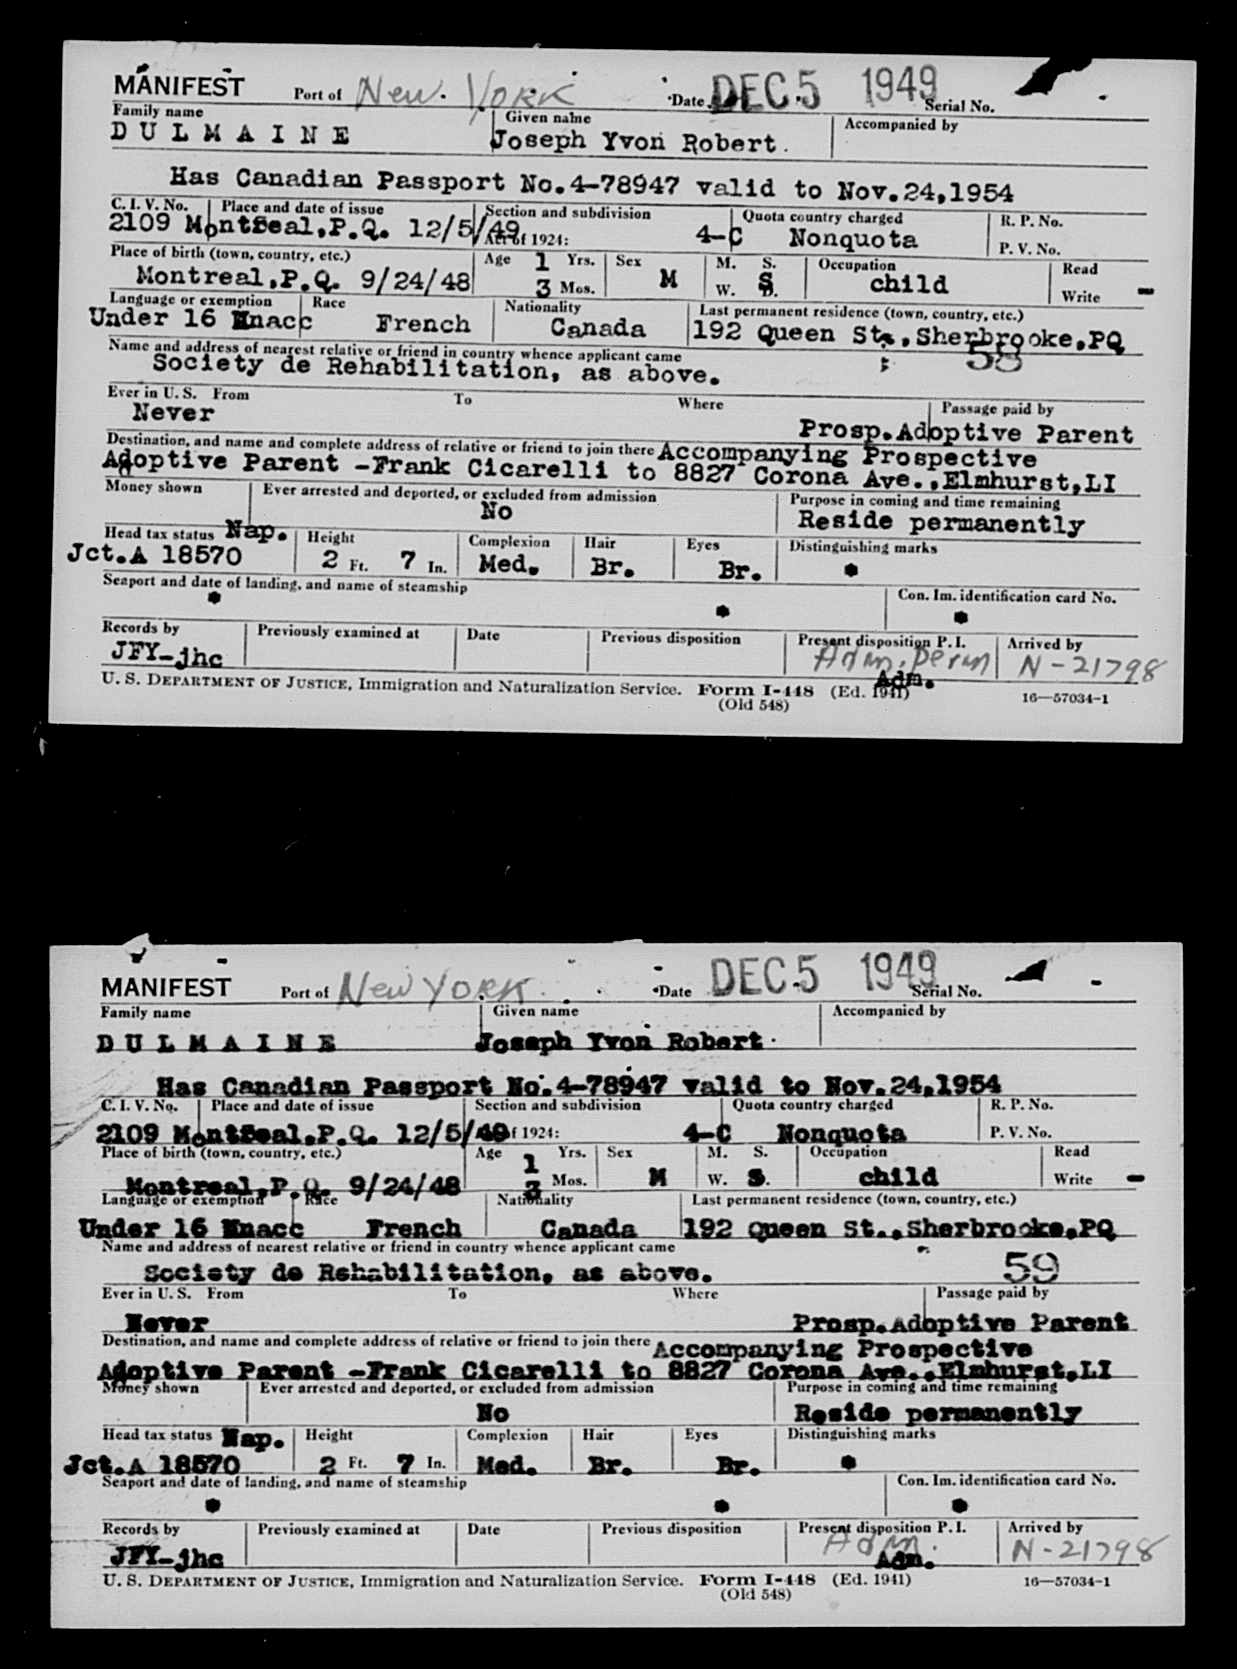 MANIFEST Port of New York Date DEC 5 1949 Serial No.
Family name Given name Accompanied by
DULMAINE Joseph Yvon Robert.
Has Canadian Passport No.4-78947 valid to Nov.24,1954
C. I. V. No. Place and date of issue Section and subdivision Quota country charged R. P. No.
2109 Montreal,P.Q. 12/5/49 Act of 1924: 4-C Nonquota P. V. No.
Place of birth (town, country, etc.) Age 1 Yrs. Sex M. S. Occupation Read
Montreal,P.Q. 9/24/48 3 Mos. M W. D. S child Write -
Language or exemption Race Nationality Last permanent residence (town, country, etc.)
Under 16 Hnacc French Canada 192 Queen St., Sherbrooke,PQ
Name and address of nearest relative or friend in country whence applicant came 58
Society de Rehabilitation, as above.
Ever in U. S. From To Where Passage paid by
Never Prosp.Adoptive Parent
Destination, and name and complete address of relative or friend to join there Accompanying Prospective
Adoptive Parent -Frank Cicarelli to 8827 Corona Ave.,Elmhurst,LI
Money shown Ever arrested and deported, or excluded from admission Purpose in coming and time remaining
No Reside permanently
Head tax status Nap. Height Complexion Hair Eyes Distinguishing marks
Jct.A 18570 2 Ft. 7 In. Med. Br. Br.
Seaport and date of landing, and name of steamship Con. Im. identification card No.
Records by Previously examined at Date Previous disposition Present disposition P. I. Arrived by
JFY-jhc Adm. perm Adm. N-21798
U. S. DEPARTMENT OF JUSTICE, Immigration and Naturalization Service. Form I-448 (Ed. 1941) 16—57034-1
(Old 548)
MANIFEST Port of New York Date DEC 5 1949 Serial No.
Family name Given name Accompanied by
DULMAINE Joseph Yvon Robert
Has Canadian Passport No.4-78947 valid to Nov.24,1954
C. I. V. No. Place and date of issue Section and subdivision Quota country charged R. P. No.
2109 Montreal,P.Q. 12/5/49 of 1924: 4-C Nonquota P. V. No.
Place of birth (town, country, etc.) Age 1 Yrs. Sex M. S. Occupation Read
Montreal,P.Q. 9/24/48 3 Mos. M W. S. child Write -
Language or exemption Race Nationality Last permanent residence (town, country, etc.)
Under 16 Hnacc French Canada 192 Queen St.,Sherbrooke,PQ
Name and address of nearest relative or friend in country whence applicant came
Society de Rehabilitation, as above. 59
Ever in U. S. From To Where Passage paid by
Never Prosp.Adoptive Parent
Destination, and name and complete address of relative or friend to join there Accompanying Prospective
Adoptive Parent -Frank Cicarelli to 8827 Corona Ave.,Elmhurst,LI
Money shown Ever arrested and deported, or excluded from admission Purpose in coming and time remaining
No Reside permanently
Head tax status Nap. Height Complexion Hair Eyes Distinguishing marks
Jct.A 18570 2 Ft. 7 In. Med. Br. Br.
Seaport and date of landing, and name of steamship Con. Im. identification card No.
Records by Previously examined at Date Previous disposition Present disposition P. I. Arrived by
JFY-jhc Adm. Adm. N-21798
U. S. DEPARTMENT OF JUSTICE, Immigration and Naturalization Service. Form I-448 (Ed. 1941) 16—57034-1
(Old 548)